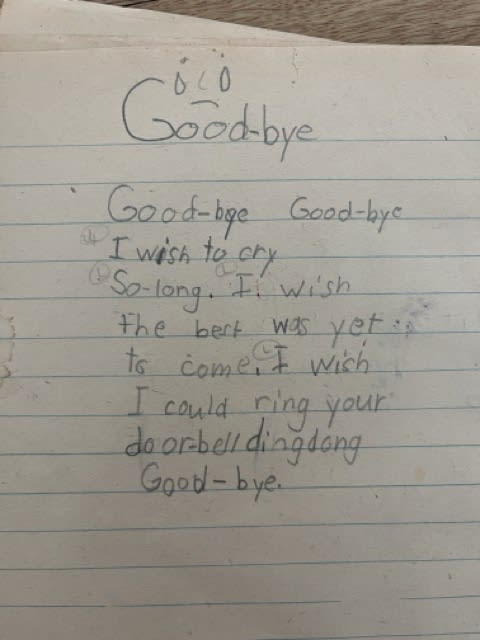 Good-bye
Good-bye Good-bye
I wish to cry
So-long. I wish
the best was yet
to come. I wish
I could ring your
door-bell dingdong
Good-bye.